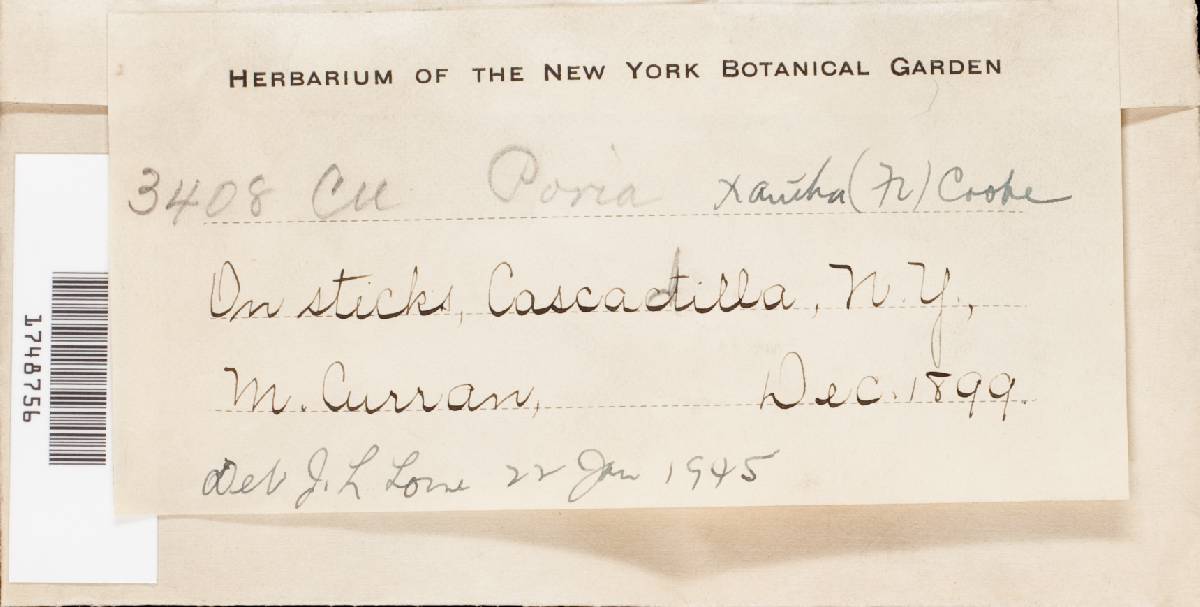 HERBARIUM OF THE NEW YORK BOTANICAL GARDEN
3408 CU Poria xantha (Fr) Cooke
On sticks, Cascadilla, N.Y.,
M. Curran, Dec. 1899.
Det J. L Lowe 22 Jan 1945
1748756